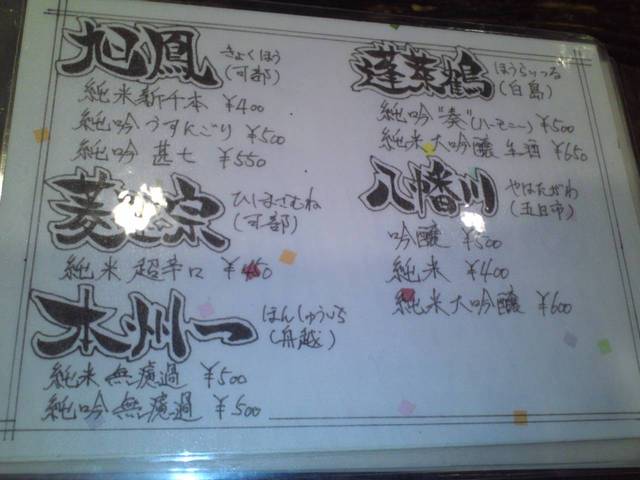 旭鳳
きょくほう
(可部)
純米 新千本 ¥400
純吟 うすにごり ¥500
純吟 甚七 ¥550
菱正宗
ひしまさむね
(可部)
純米 超辛口 ¥450
本州一
ほんしゅういち
(舟越)
純米 無濾過 ¥500
純吟 無濾過 ¥500
蓬莱鶴
ほうらいつる
(白島)
純吟 "奏"(ハーモニー) ¥500
純米大吟醸 生酒 ¥650
八幡川
やはたがわ
(五日市)
吟醸 ¥500
純米 ¥400
純米大吟醸 ¥600